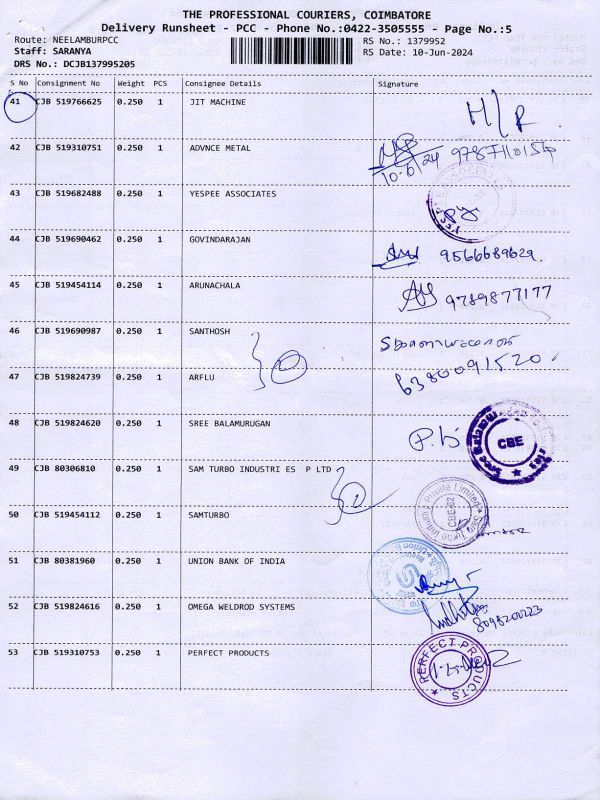 THE PROFESSIONAL COURIERS, COIMBATORE
Delivery Runsheet - PCC - Phone No.:0422-3505555 - Page No.:5
Route: NEELAMBURPCC RS No.: 1379952
Staff: SARANYA RS Date: 10-Jun-2024
DRS No.: DCJB137995205
S No Consignment No Weight PCS Consignee Details Signature
41 CJB 519766625 0.250 1 JIT MACHINE
42 CJB 519310751 0.250 1 ADVNCE METAL
43 CJB 519682488 0.250 1 YESPEE ASSOCIATES
44 CJB 519690462 0.250 1 GOVINDARAJAN 9566689629.
45 CJB 519454114 0.250 1 ARUNACHALA 9789877177
46 CJB 519690987 0.250 1 SANTHOSH
6380091520
47 CJB 519824739 0.250 1 ARFLU
48 CJB 519824620 0.250 1 SREE BALAMURUGAN CBE
49 CJB 80306810 0.250 1 SAM TURBO INDUSTRI ES P LTD
50 CJB 519454112 0.250 1 SAMTURBO
51 CJB 80381960 0.250 1 UNION BANK OF INDIA
52 CJB 519824616 0.250 1 OMEGA WELDROD SYSTEMS
53 CJB 519310753 0.250 1 PERFECT PRODUCTS PERFECT PRODUCTS